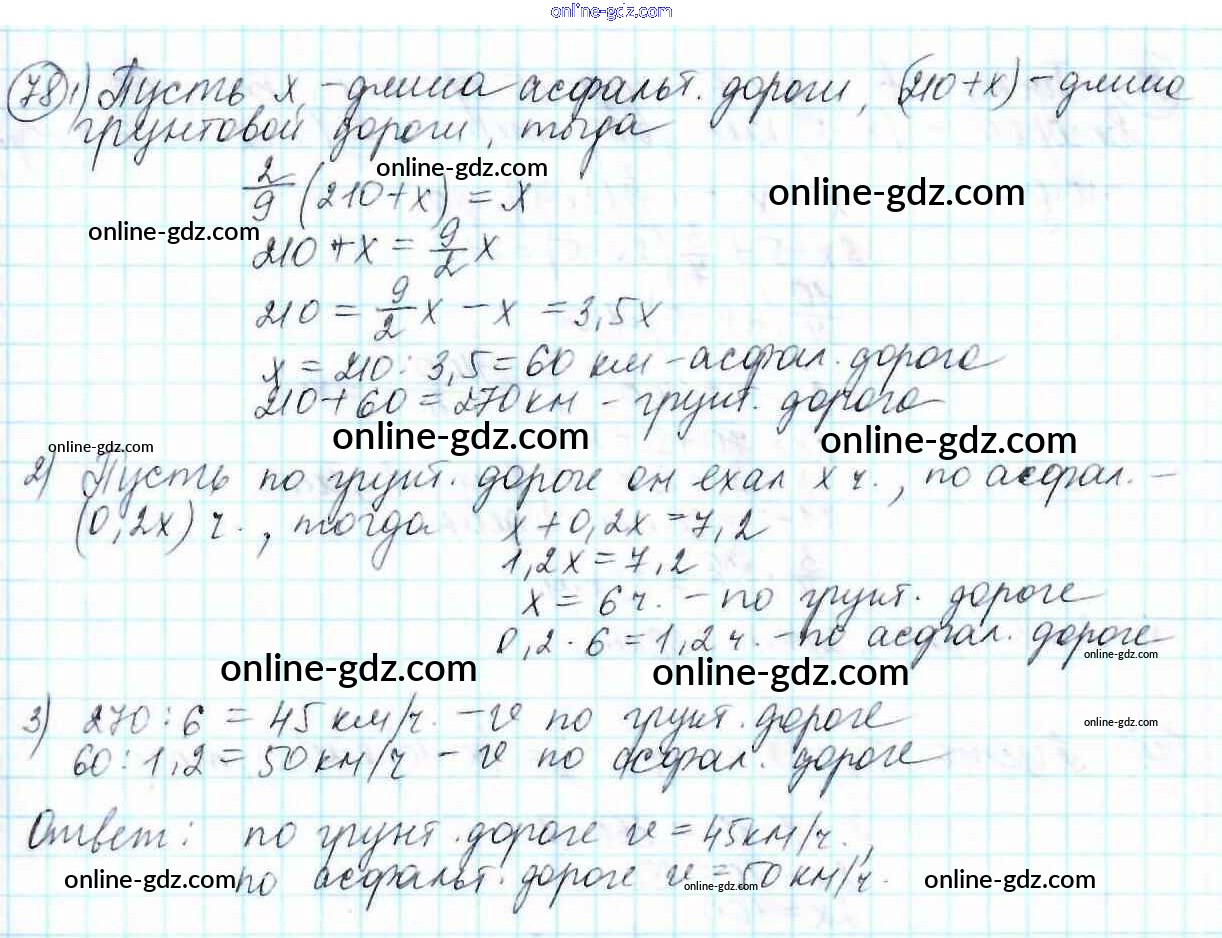 online-gdz.com
78 1) Пусть x - длина асфальт. дороги, (210+x) - длина
грунтовой дороги, тогда
online-gdz.com
2/9 (210+x) = x
online-gdz.com
online-gdz.com
210 + x = 9/2 x
210 = 9/2 x - x = 3,5x
x = 210 : 3,5 = 60 км - асфал. дорога
210+60 = 270 км - грунт. дорога
online-gdz.com
online-gdz.com
online-gdz.com
2) Пусть по грунт. дороге он ехал x ч., по асфал. -
(0,2x) ч., тогда x + 0,2x = 7,2
1,2x = 7,2
x = 6 ч. - по грунт. дороге
0,2 · 6 = 1,2 ч. - по асфал. дороге
online-gdz.com
online-gdz.com
online-gdz.com
3) 270 : 6 = 45 км/ч. - v по грунт. дороге
online-gdz.com
60 : 1,2 = 50 км/ч - v по асфал. дороге
Ответ: по грунт. дороге v = 45 км/ч.,
по асфальт. дороге v = 50 км/ч.
online-gdz.com
online-gdz.com
online-gdz.com